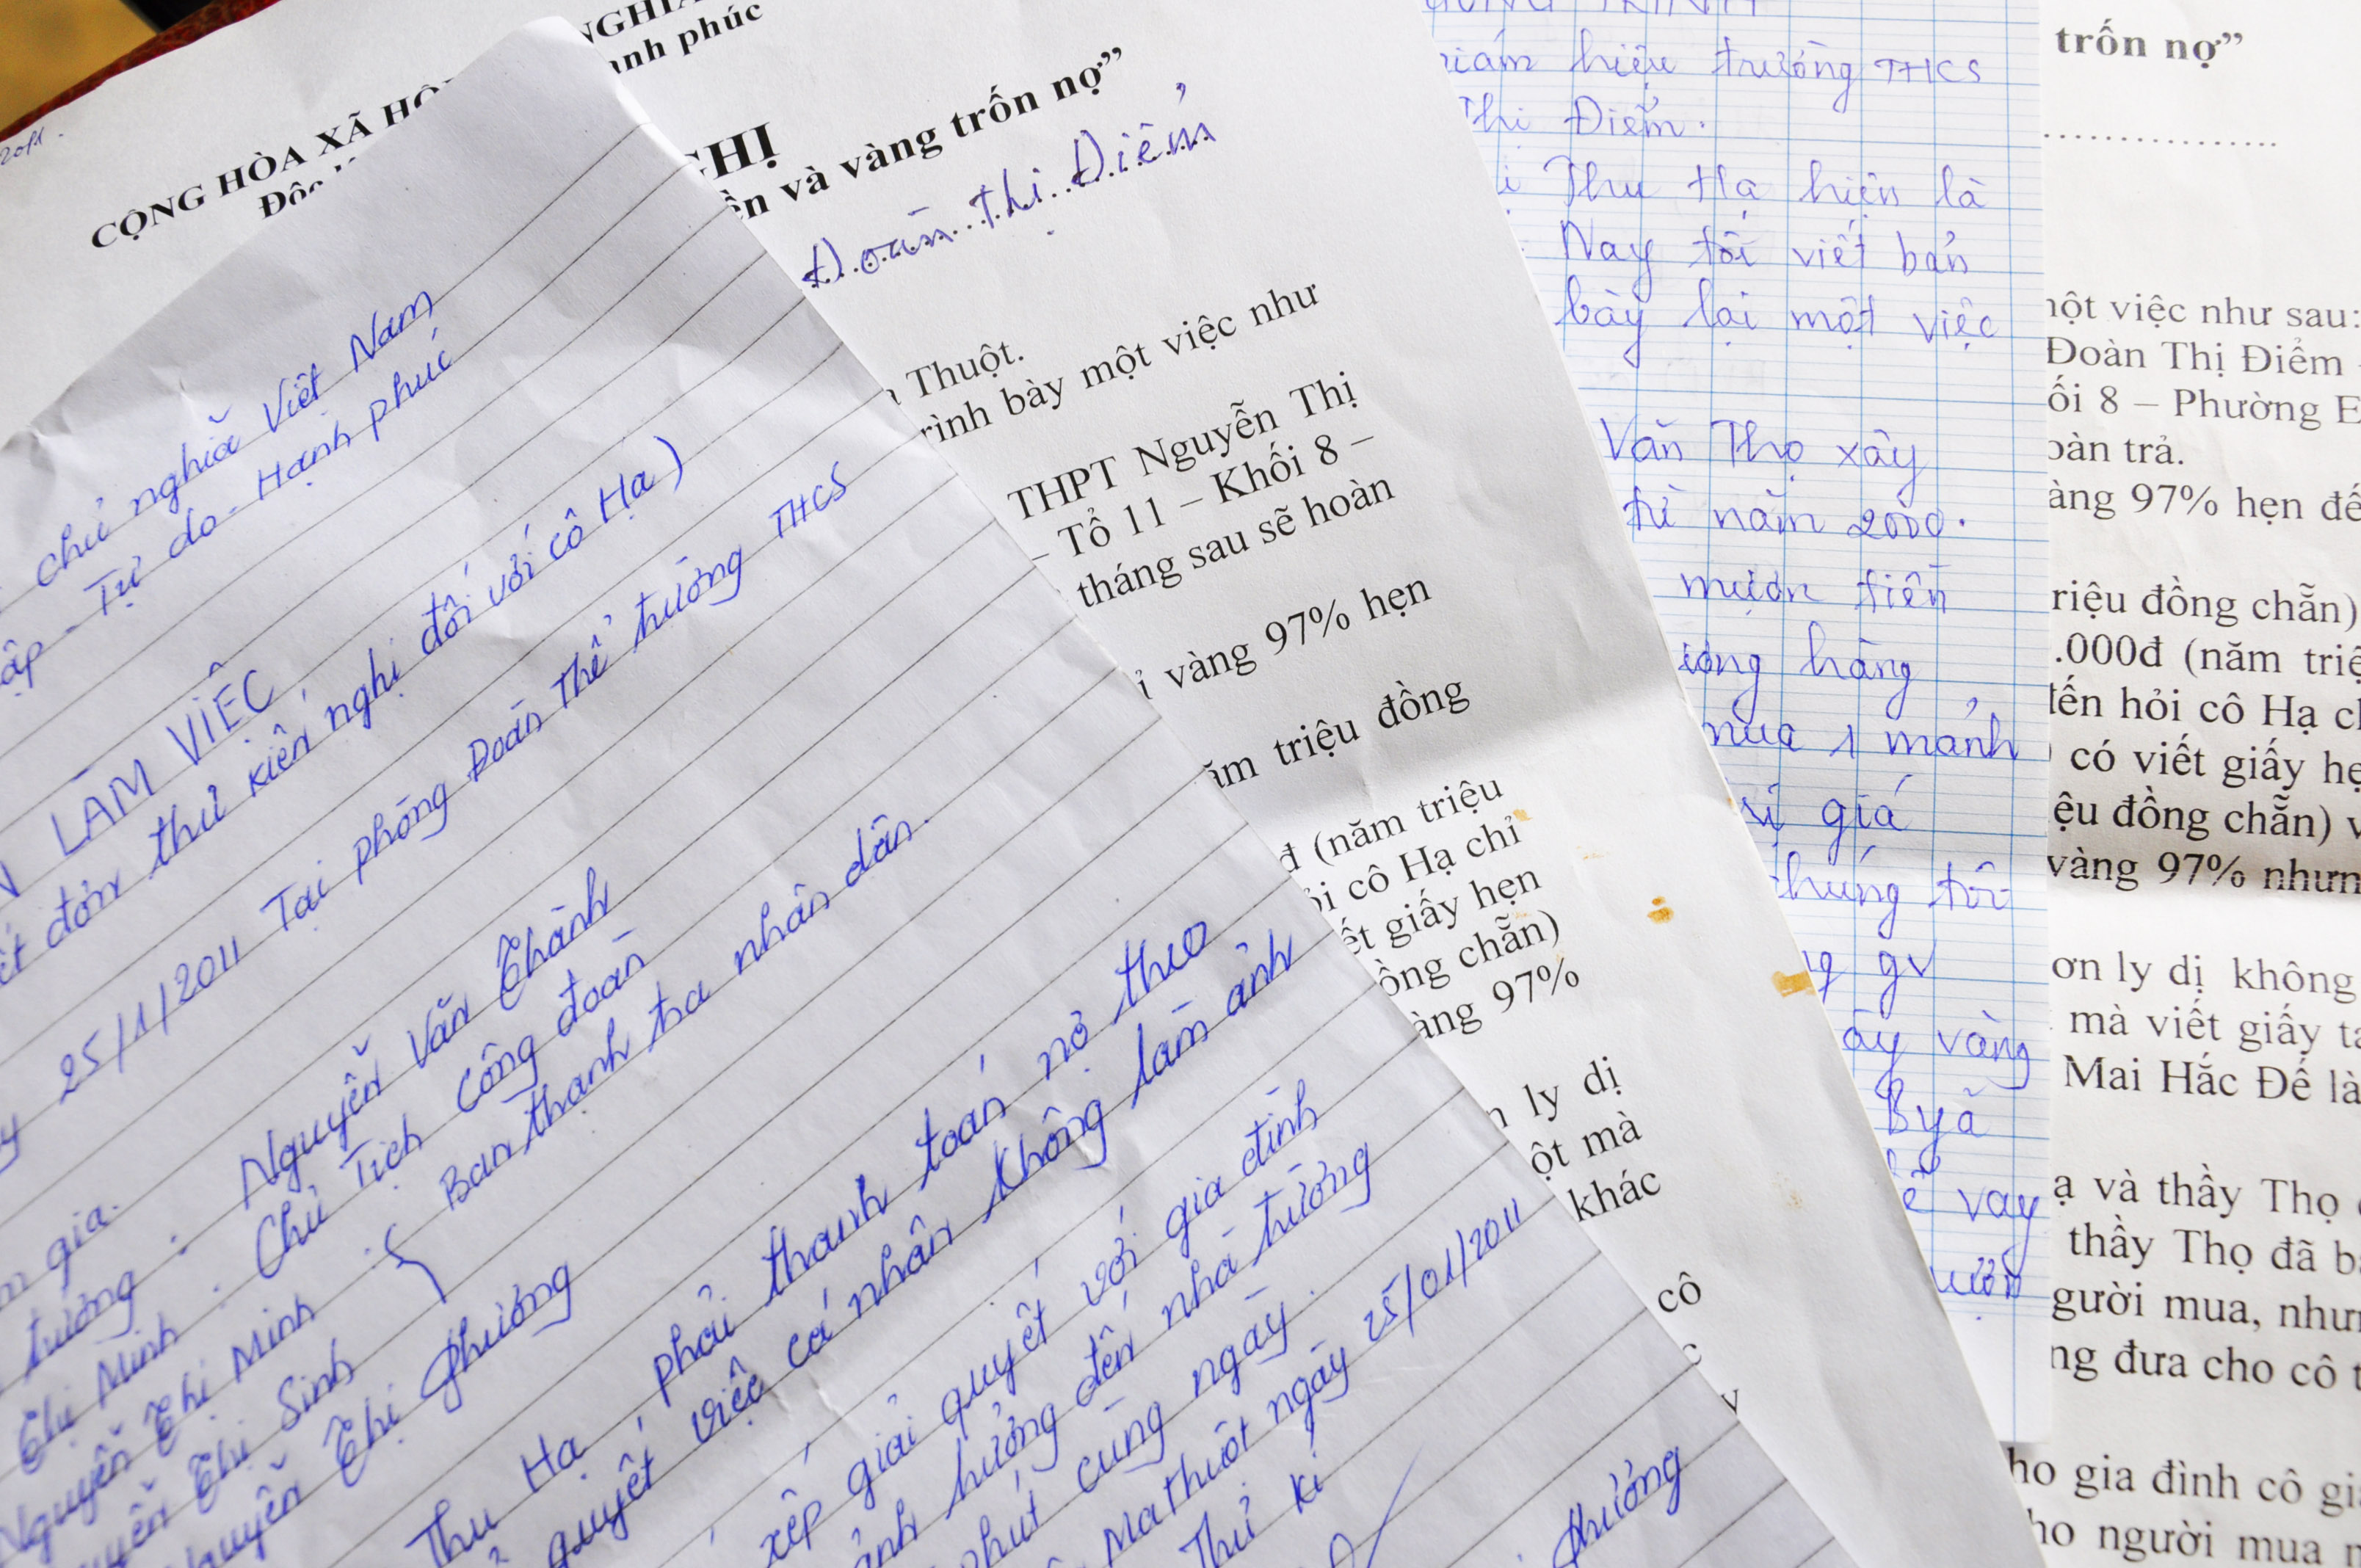 2011.
CỘNG HÒA XÃ HỘI
Độc
chủ nghĩa Việt Nam
lập - Tự do - Hạnh phúc
LÀM VIỆC
đơn thư kiến nghị đối với cô Hạ)
25/1/2011 Tại phòng Đoàn thể trường THCS
gia.
trưởng : Nguyễn Văn Thành
Thị Minh . Chủ Tịch Công đoàn
Nguyễn Thị Minh
Thị Sinh } Ban thanh tra nhân dân.
Nguyễn Thị Phương
Thu Hạ, phải thanh toán nợ theo
quyết việc cá nhân không làm ảnh
xếp giải quyết với gia đình
ảnh hưởng đến nhà trường
phút cùng ngày.
Mathuột ngày 25/01/2011
Thư kí
Phương
NGHĨA
anh phúc
GHỊ
và vàng trốn nợ”
Đoàn Thị Điểm
Thuột.
trình bày một việc như
THPT Nguyễn Thị
– Tổ 11 – Khối 8 –
tháng sau sẽ hoàn
vàng 97% hẹn
năm triệu đồng
đ (năm triệu
hỏi cô Hạ chỉ
viết giấy hẹn
đồng chẵn)
vàng 97%
ly dị
một mà
khác
cô
giám hiệu trường THCS
Thị Điểm.
Thu Hạ hiện là
Nay tôi viết bản
bày lại một việc
Văn Thọ xây
từ năm 2000.
mượn tiền
hàng
mua 1 mảnh
giá
chúng tôi
gv
vàng
Byă
vay
mượn
trốn nợ”
một việc như sau:
Đoàn Thị Điểm –
Khối 8 – Phường E
hoàn trả.
vàng 97% hẹn đế
triệu đồng chẵn)
.000đ (năm triệ
đến hỏi cô Hạ ch
có viết giấy hẹ
triệu đồng chẵn) v
vàng 97% nhưn
đơn ly dị không
mà viết giấy ta
Mai Hắc Đế là
Hạ và thầy Thọ
thầy Thọ đã b
người mua, như
đưa cho cô t
cho gia đình cô gi
cho người mua